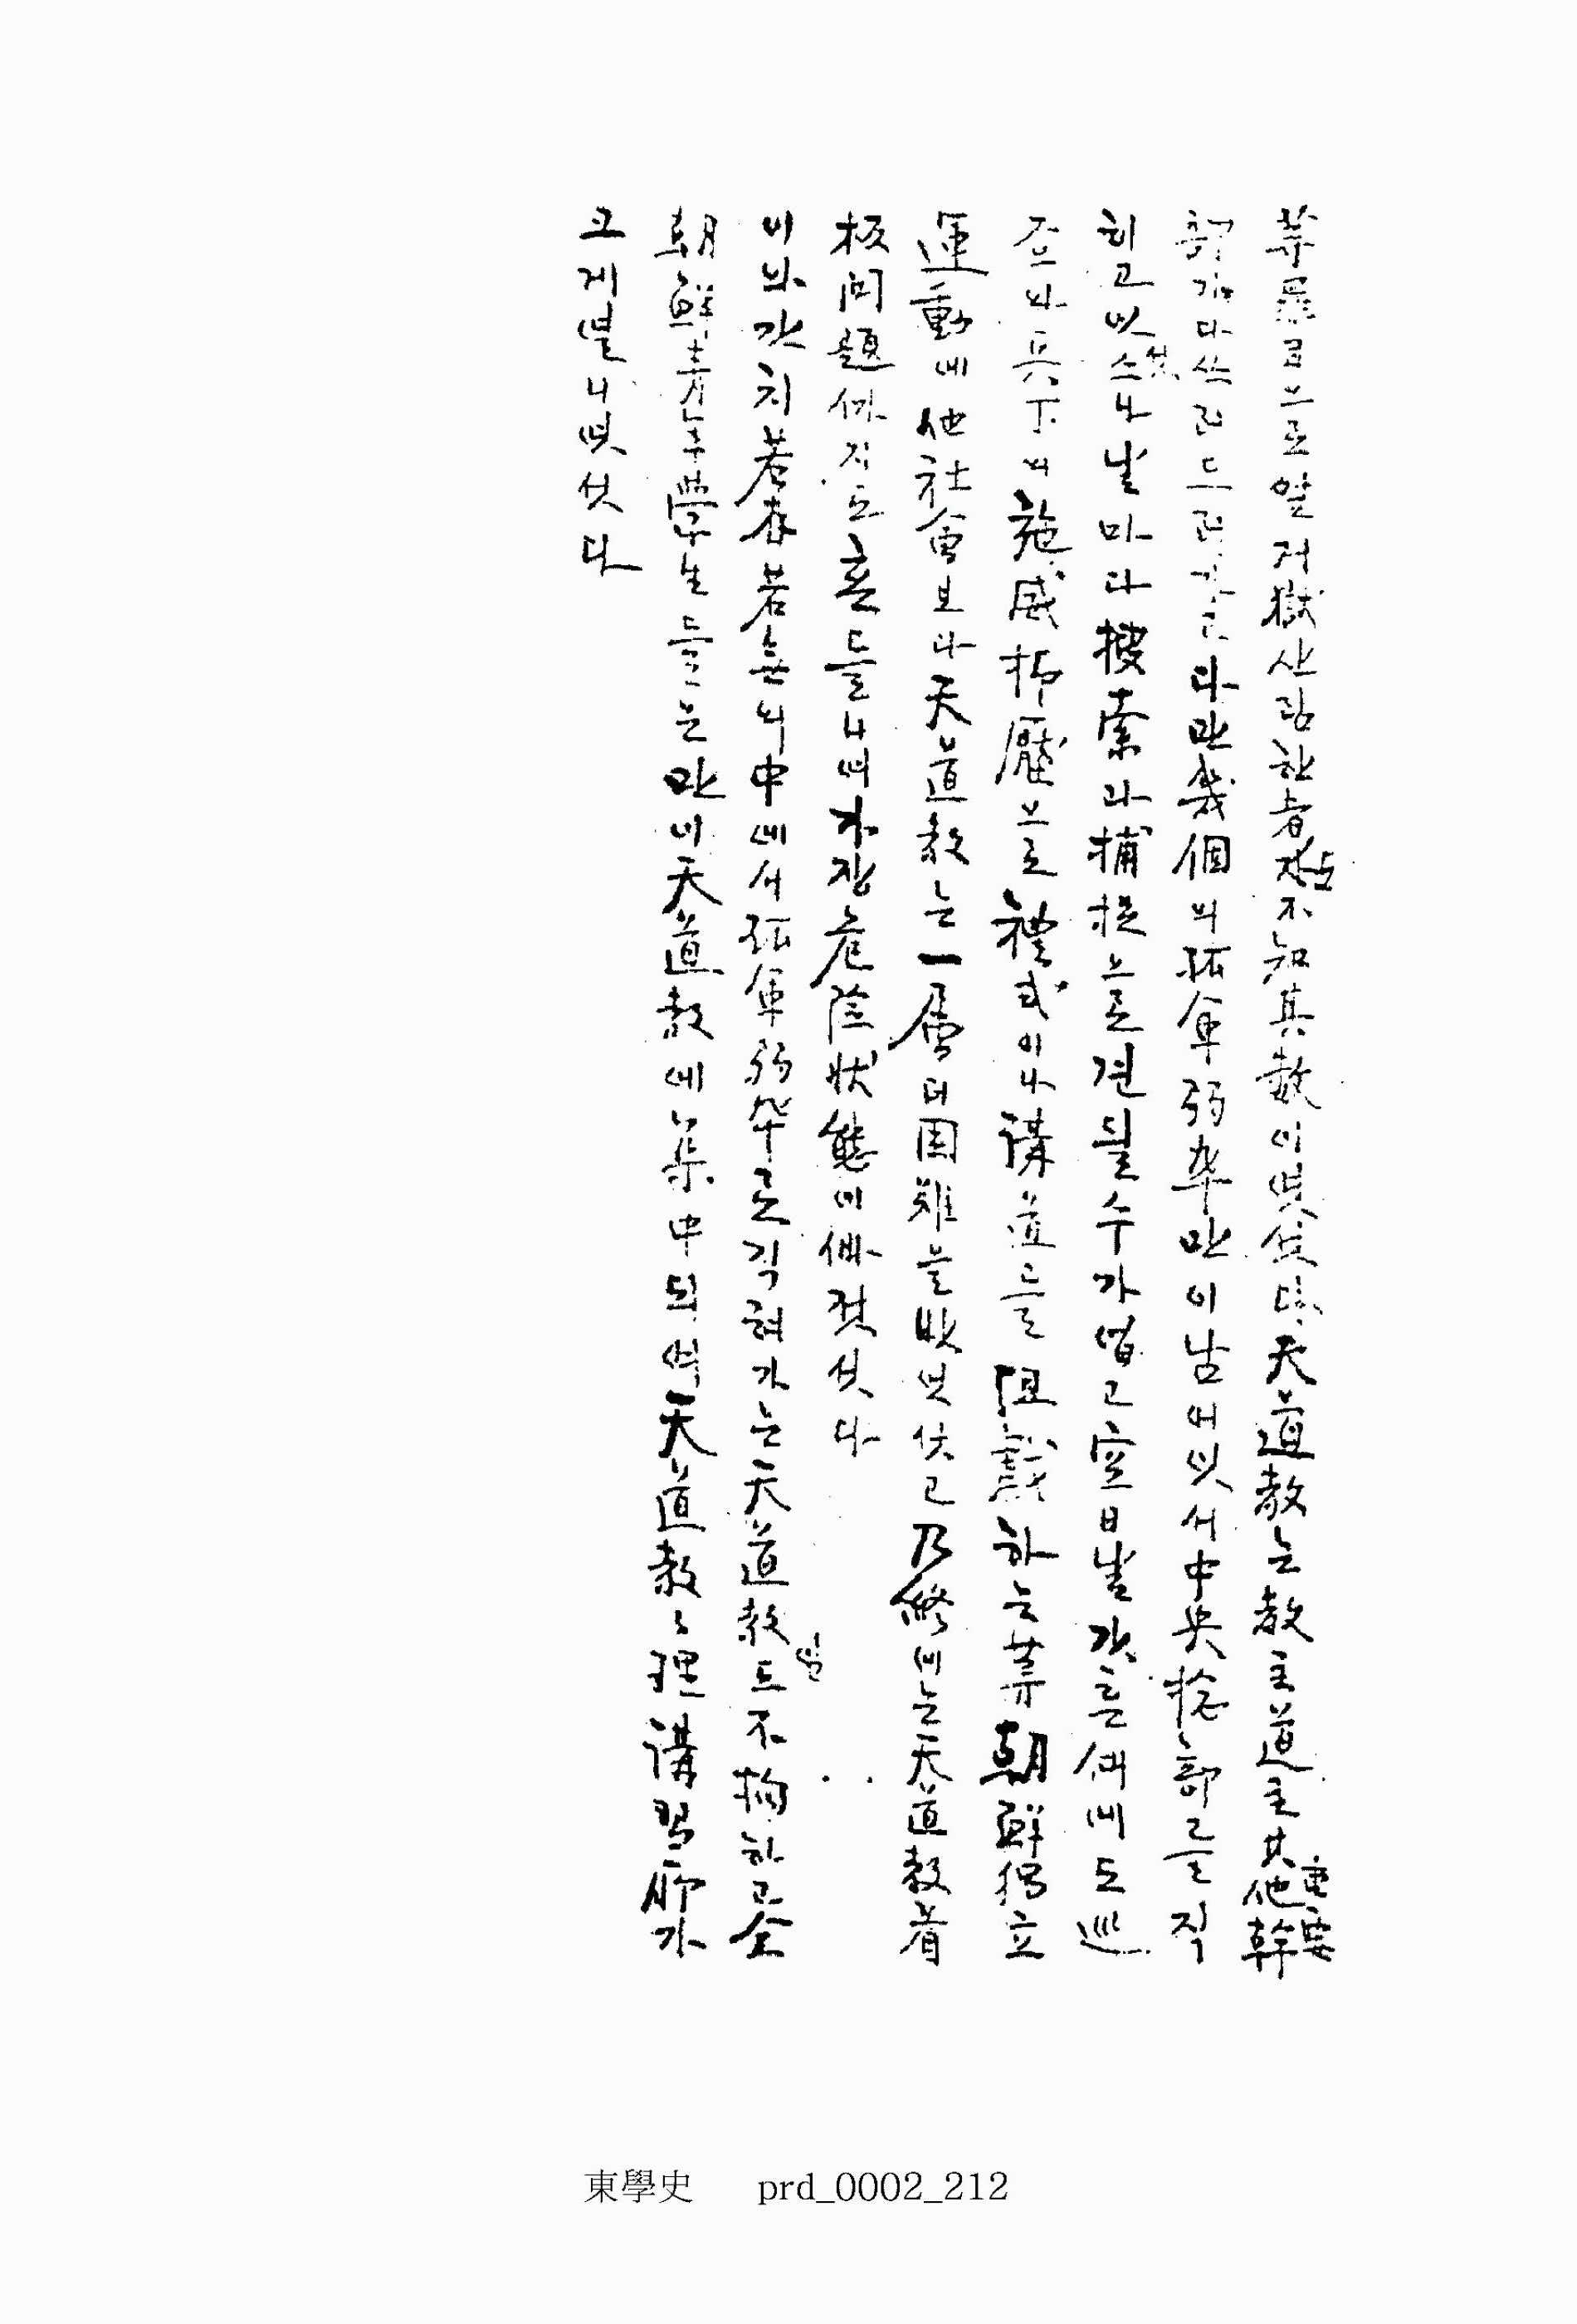 等 罪目으로 앞거 獄사리한 者 亦 不知其數이엿섯다 天道敎는 敎主 道主 其他 重要 幹
部가 다 쓰러드러가고 다만 幾個의 孤軍弱卒만이 남어잇서 中央総部를 직
히고 잇섯스나 날마다 搜索과 捕捉으로 견딀 수가 업고 空日날 갓흔 때에도 巡
査와 兵丁의 施威抑壓으로 禮式이나 講道를 阻戱하는 等 朝鮮獨立
運動에 他社會보다 天道敎는 一層 더 困難을 밧엇섯고 乃終에는 天道敎 看
板 問題까지도 흔들니여 가장 危険 狀態에 빠젓섯다
이와 갓치 若存若無의 中에서 孤軍弱卒로 직혀가는 天道敎임도 不拘하고 全
朝鮮靑年學生들은 만이 天道敎에 集中되여 天道敎々理講習所가
크게 열니엿섯다
東學史 prd_0002_212